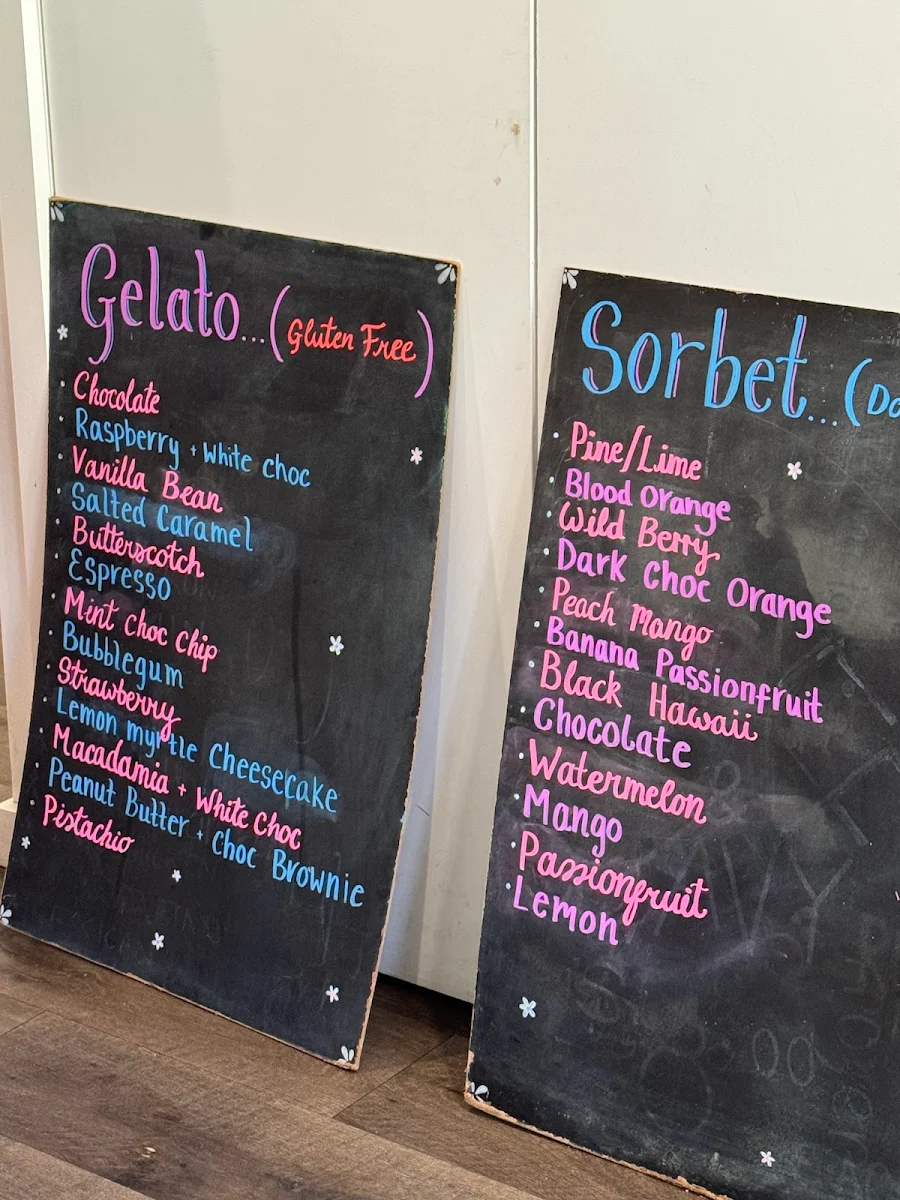 Gelato...(Gluten Free)
Chocolate
Raspberry + White choc
Vanilla Bean
Salted Caramel
Butterscotch
Espresso
Mint Choc Chip
Bubblegum
Strawberry
Lemon myrtle Cheesecake
Macadamia + White Choc
Peanut Butter + Choc Brownie
Pistachio
Sorbet...(
Pine/Lime
Blood Orange
Wild Berry
Dark Choc Orange
Peach Mango
Banana Passionfruit
Black Hawaii
Chocolate
Watermelon
Mango
Passionfruit
Lemon